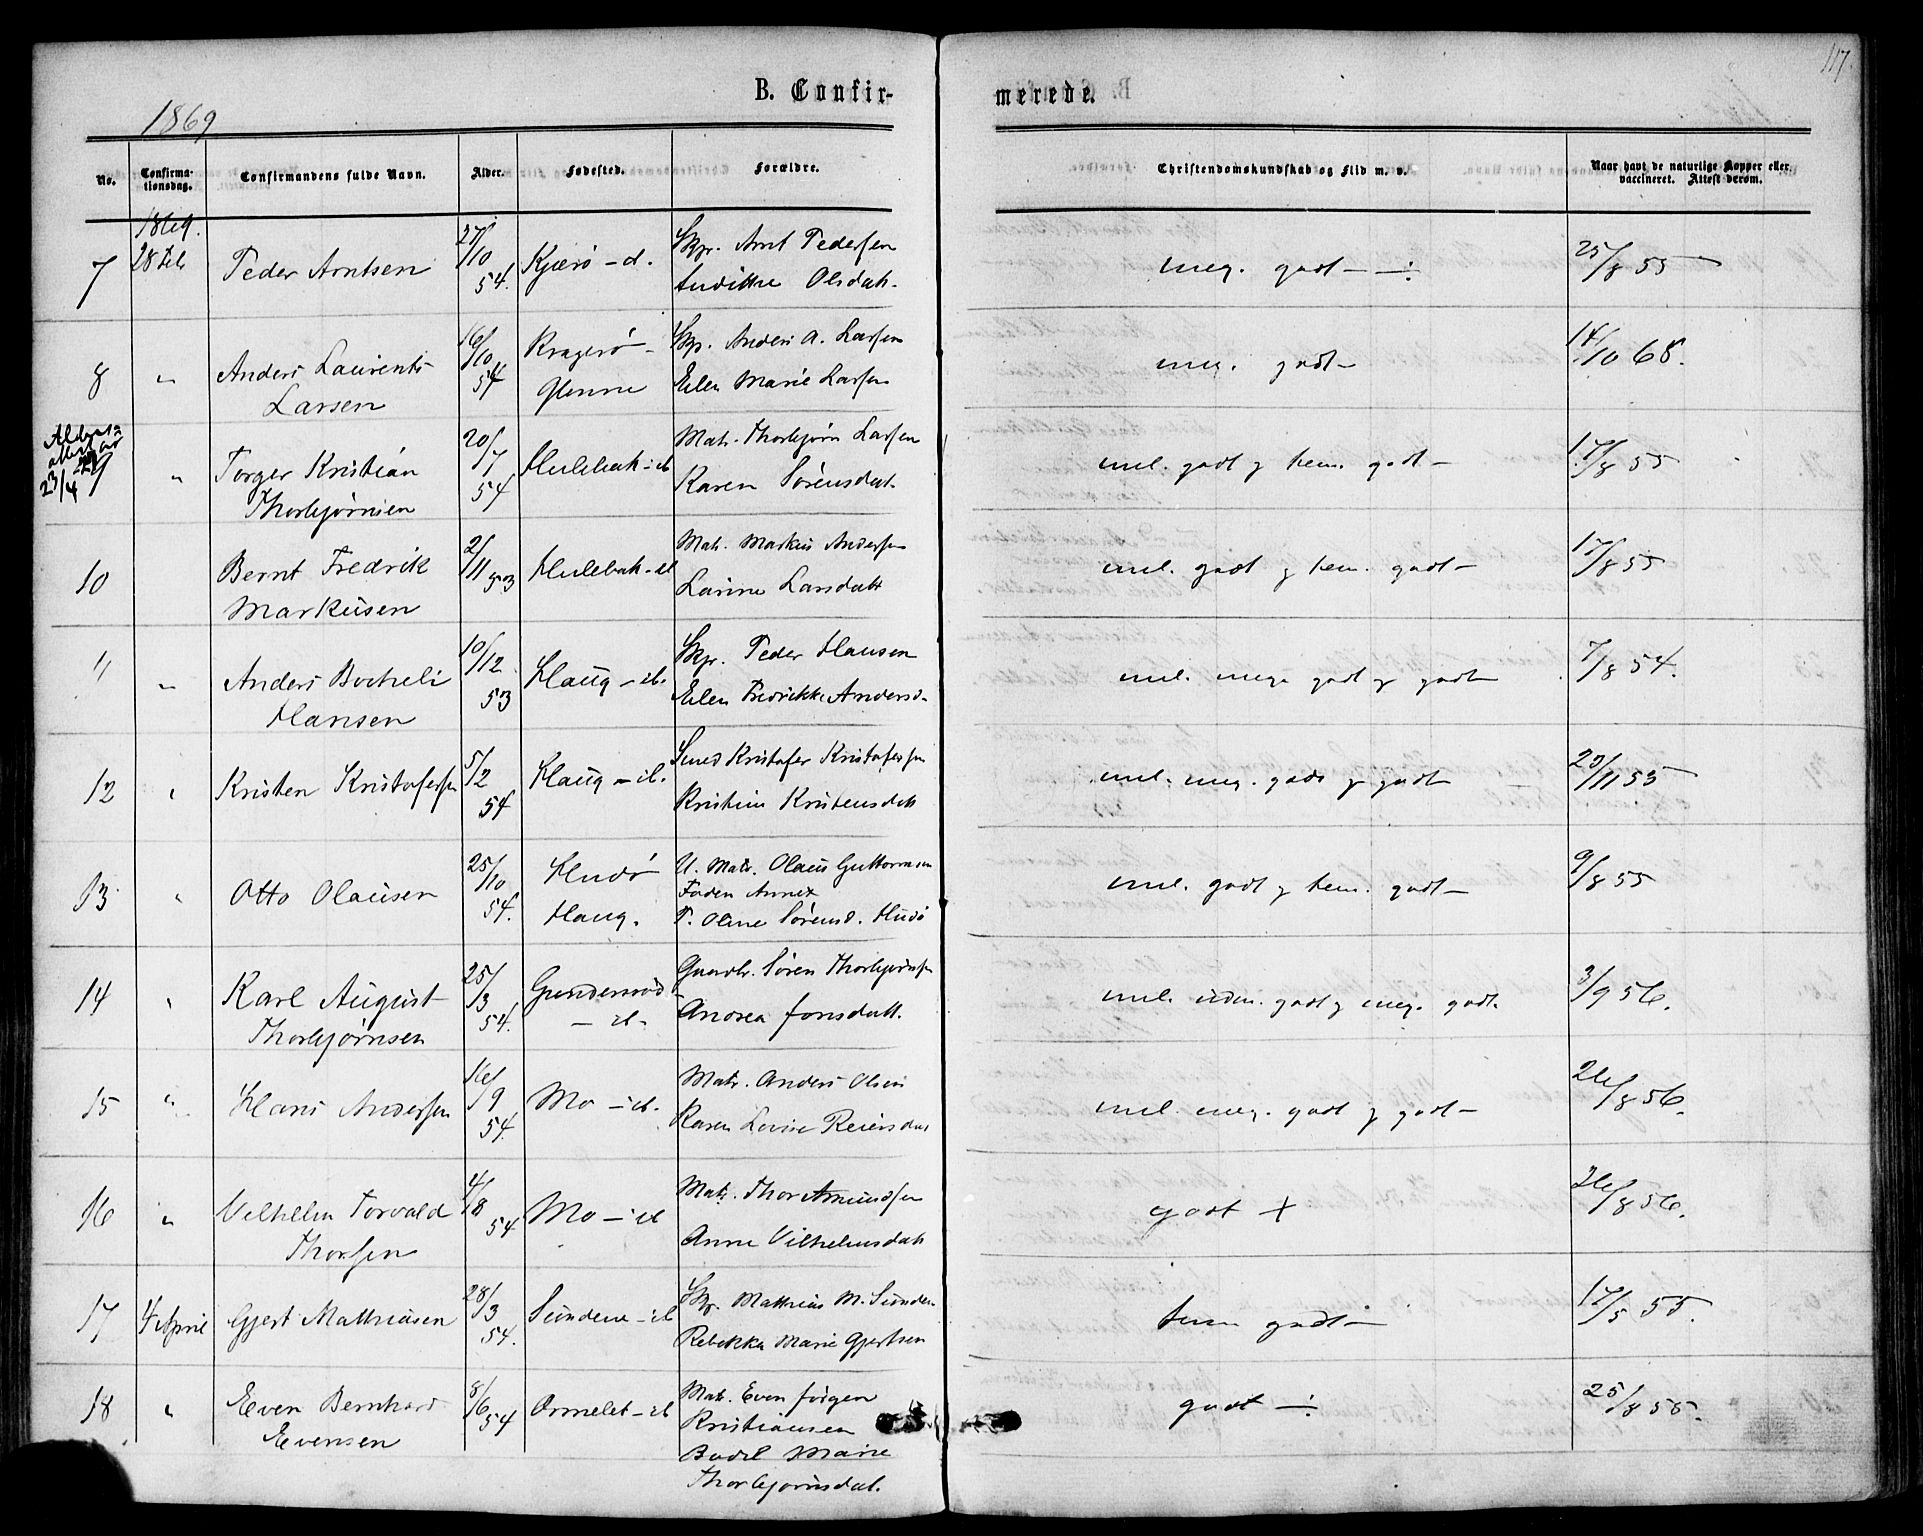 117
1869
B. Confirmerede.
No. Confirmationsdag. Confirmandens fulde Navn. Alder. Fødested. Forældre. Christendomskundskab og Flid m. v. Naar havt de naturlige Kopper eller vaccineret. Attest derom.
1869.
7 28 Feb Peder Arntsen 27/10 54. Kjærø - d. Skpr. Arnt Pedersen
Olsdatt. meg. godt - ÷ 25/8 55
8 " Anders Laurents Larsen 16/10 54 Kragerø - Glenne Skp. Anders A. Larsen
Elen Marie Larsen meg. godt - 14/10 68.
23/4
9 " Torger Kristian Thorbjørnsen 20/7 54 Hulebak - ib Matr. Thorbjørn Larsen
Karen Sørensdatt. mel. godt g tem. godt - 17/8 55
10 Bernt Fredrik Markusen 2/11 53 Hulebak - ib Matr. Markus Andersen
Larine Larsdatt mel. godt g tem. godt - 17/8 55
11 " Anders Bocheli Hansen 10/12 53 Haug - ib. Skpr. Peder Hansen
Elen Fredrikke Andersd. mel. meg. godt g godt 7/8 54.
12 " Kristen Kristofersen 5/2 54 Haug - ib. Smed Kristofer Kristofersen
Kristine Kristensdatt mel. meg. godt g godt 20/11 55
13 " Otto Olausen 25/10 54. Hudø Haug. U. Matr. Olaus Guttormsen
Faden Annex
P. Oline Sørensd. Hudø mel. godt g tem. godt - 9/8 55
14 " Karl August Thorbjørnsen 25/3 54. Gundersrød - ib. Gaardbr. Søren Thorbjørnsen
Andrea Jonsdatt. mel. uden. godt g meg. godt. 3/9 56.
15 " Hans Andersen 16/9 54. Mo - ib. Matr. Anders Olsen
Karen Lovise Reiersdat mel. meg. godt g godt - 26/8 56.
16 " Vilhelm Torvald Thorsen 4/8 54 Mo - ib Matr. Thor Amundsen
Anne Vilhelmsdatt godt + 26/8 56.
17 4 April Gjert Mathiasen 28/3 54. Sundene - ib Skp. Mathias M. Sunden
Rebekka Marie Gjertsen tem godt - 17/5 55.
18 " Even Bernhard Evensen 8/6 54 Ormelet - ib Matr. Even Jørgen
Kristiansen
Bodil Marie
Thorbjørnsdat. godt ÷ 25/8 55.